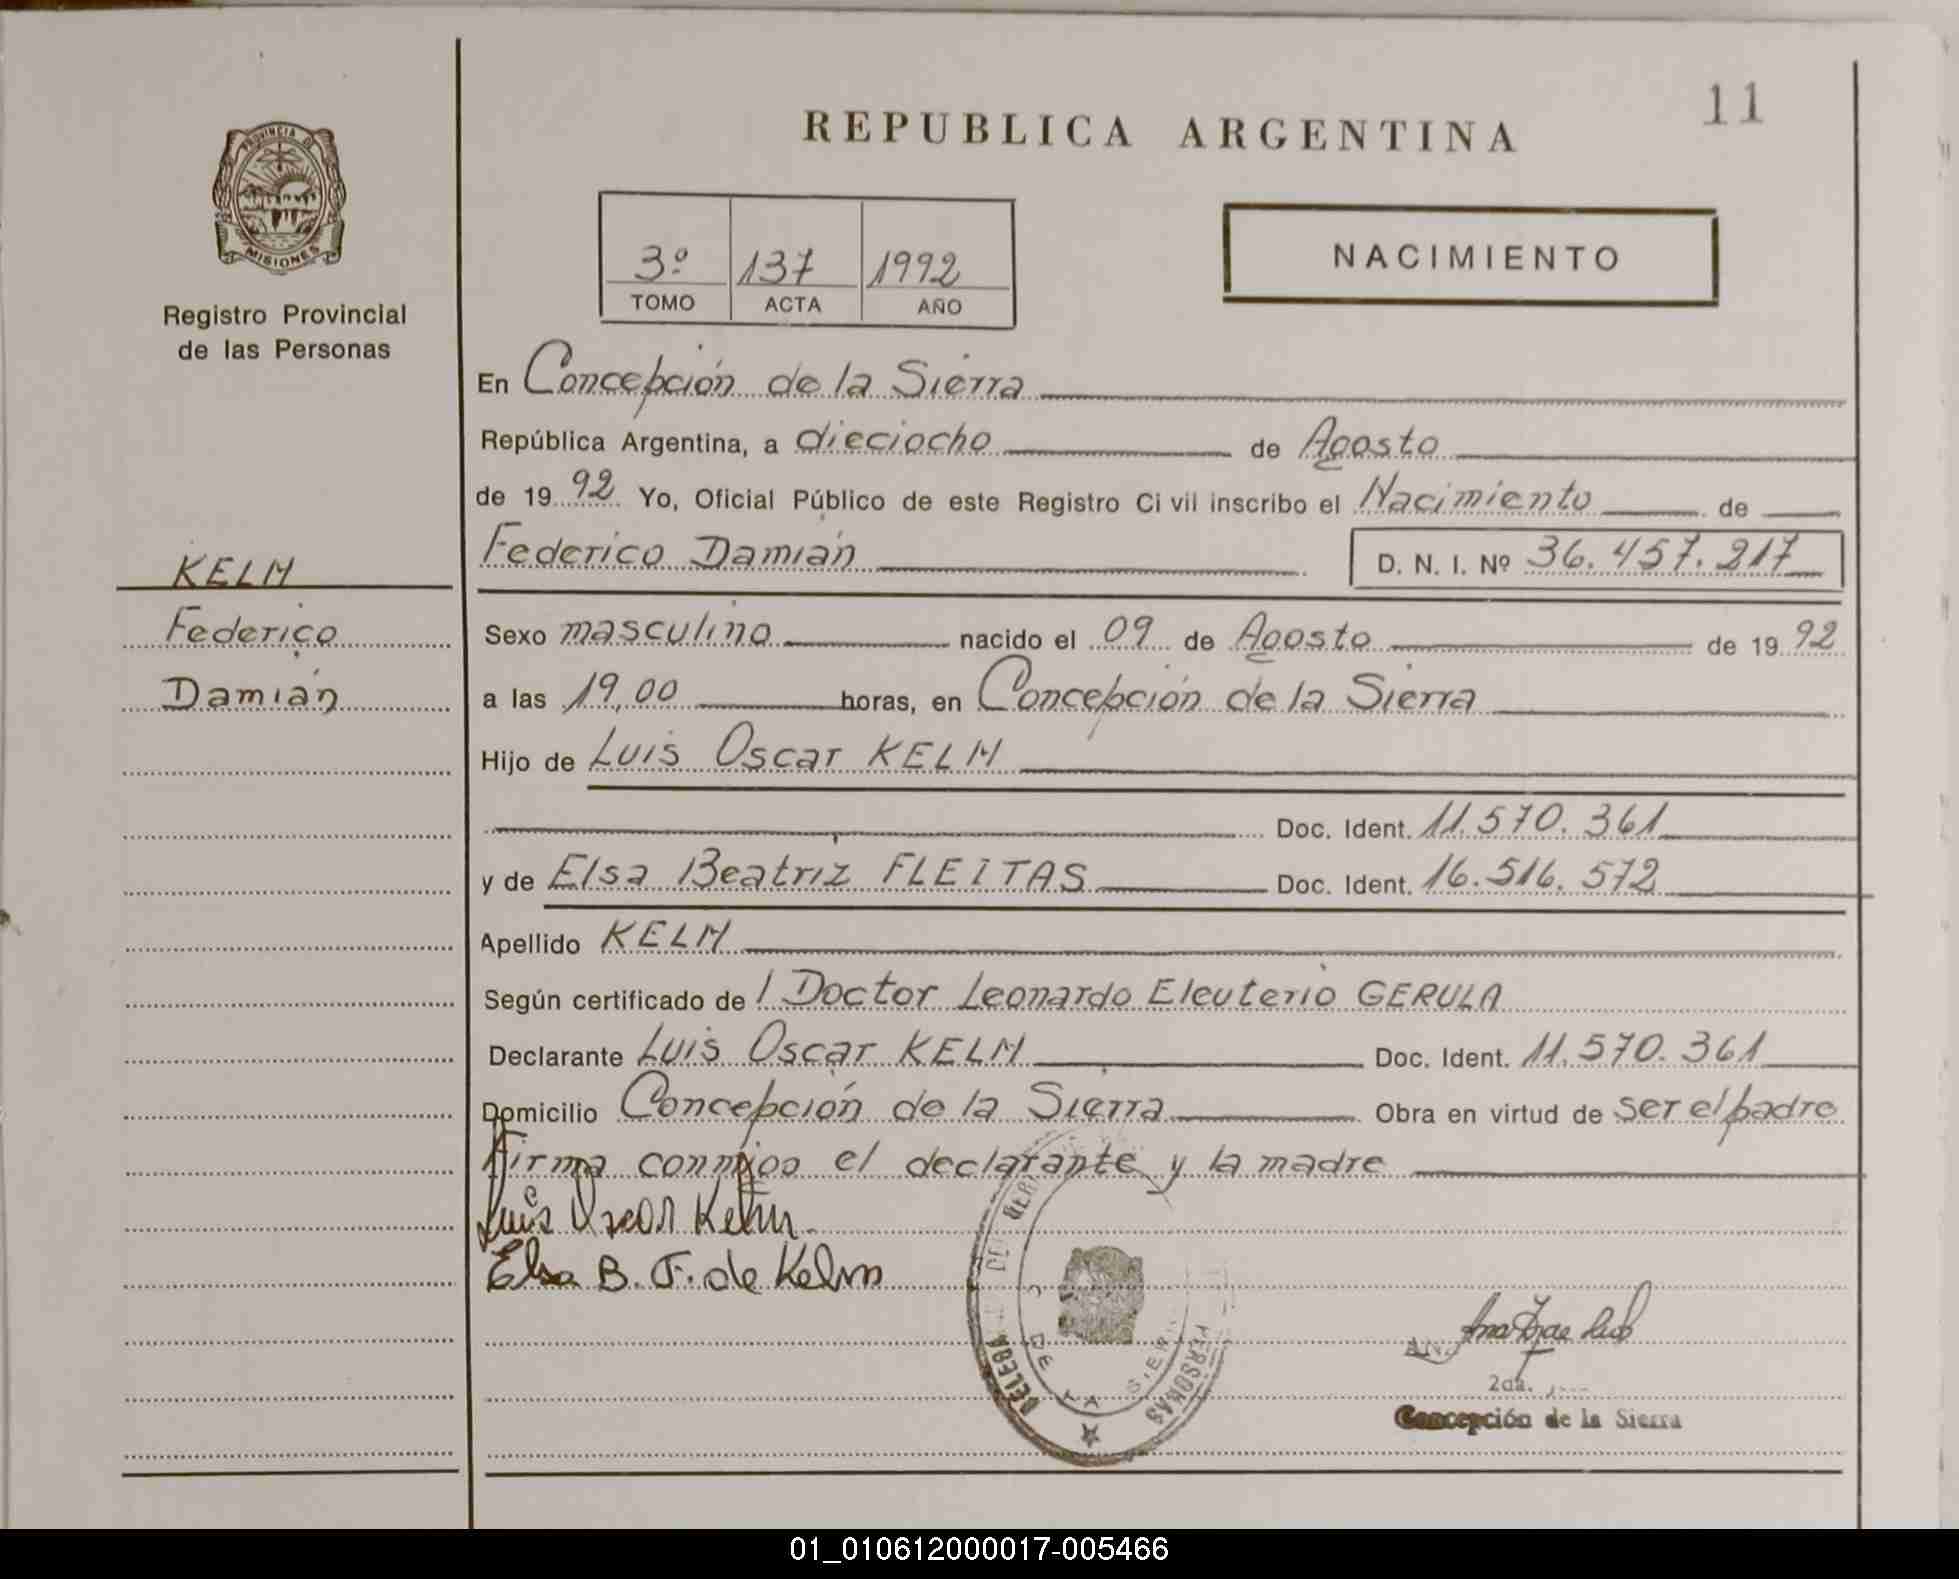 11
REPUBLICA ARGENTINA
PROVINCIA DE
MISIONES
Registro Provincial
de las Personas
3º 137 1992
TOMO ACTA AÑO
NACIMIENTO
En Concepción de la Sierra
República Argentina, a dieciocho de Agosto
de 19 92 Yo, Oficial Público de este Registro Civil inscribo el Nacimiento de
Federico Damián D. N. I. Nº 36.457.217
KELM
Federico
Damián
Sexo masculino nacido el 09 de Agosto de 19 92
a las 19,00 horas, en Concepción de la Sierra
Hijo de Luis Oscar KELM
Doc. Ident. 11.570.361
y de Elsa Beatriz FLEITAS Doc. Ident. 16.516.572
Apellido KELM
Según certificado de l Doctor Leonardo Eleuterio GERULA
Declarante Luis Oscar KELM Doc. Ident. 11.570.361
Domicilio Concepción de la Sierra Obra en virtud de ser el padre
Firma conmigo el declarante y la madre
Luis Oscar Kelm.
Elsa B. F. de Kelm
DE LA SIER
PERSONAS
2da.
Concepción de la Sierra
01_010612000017-005466